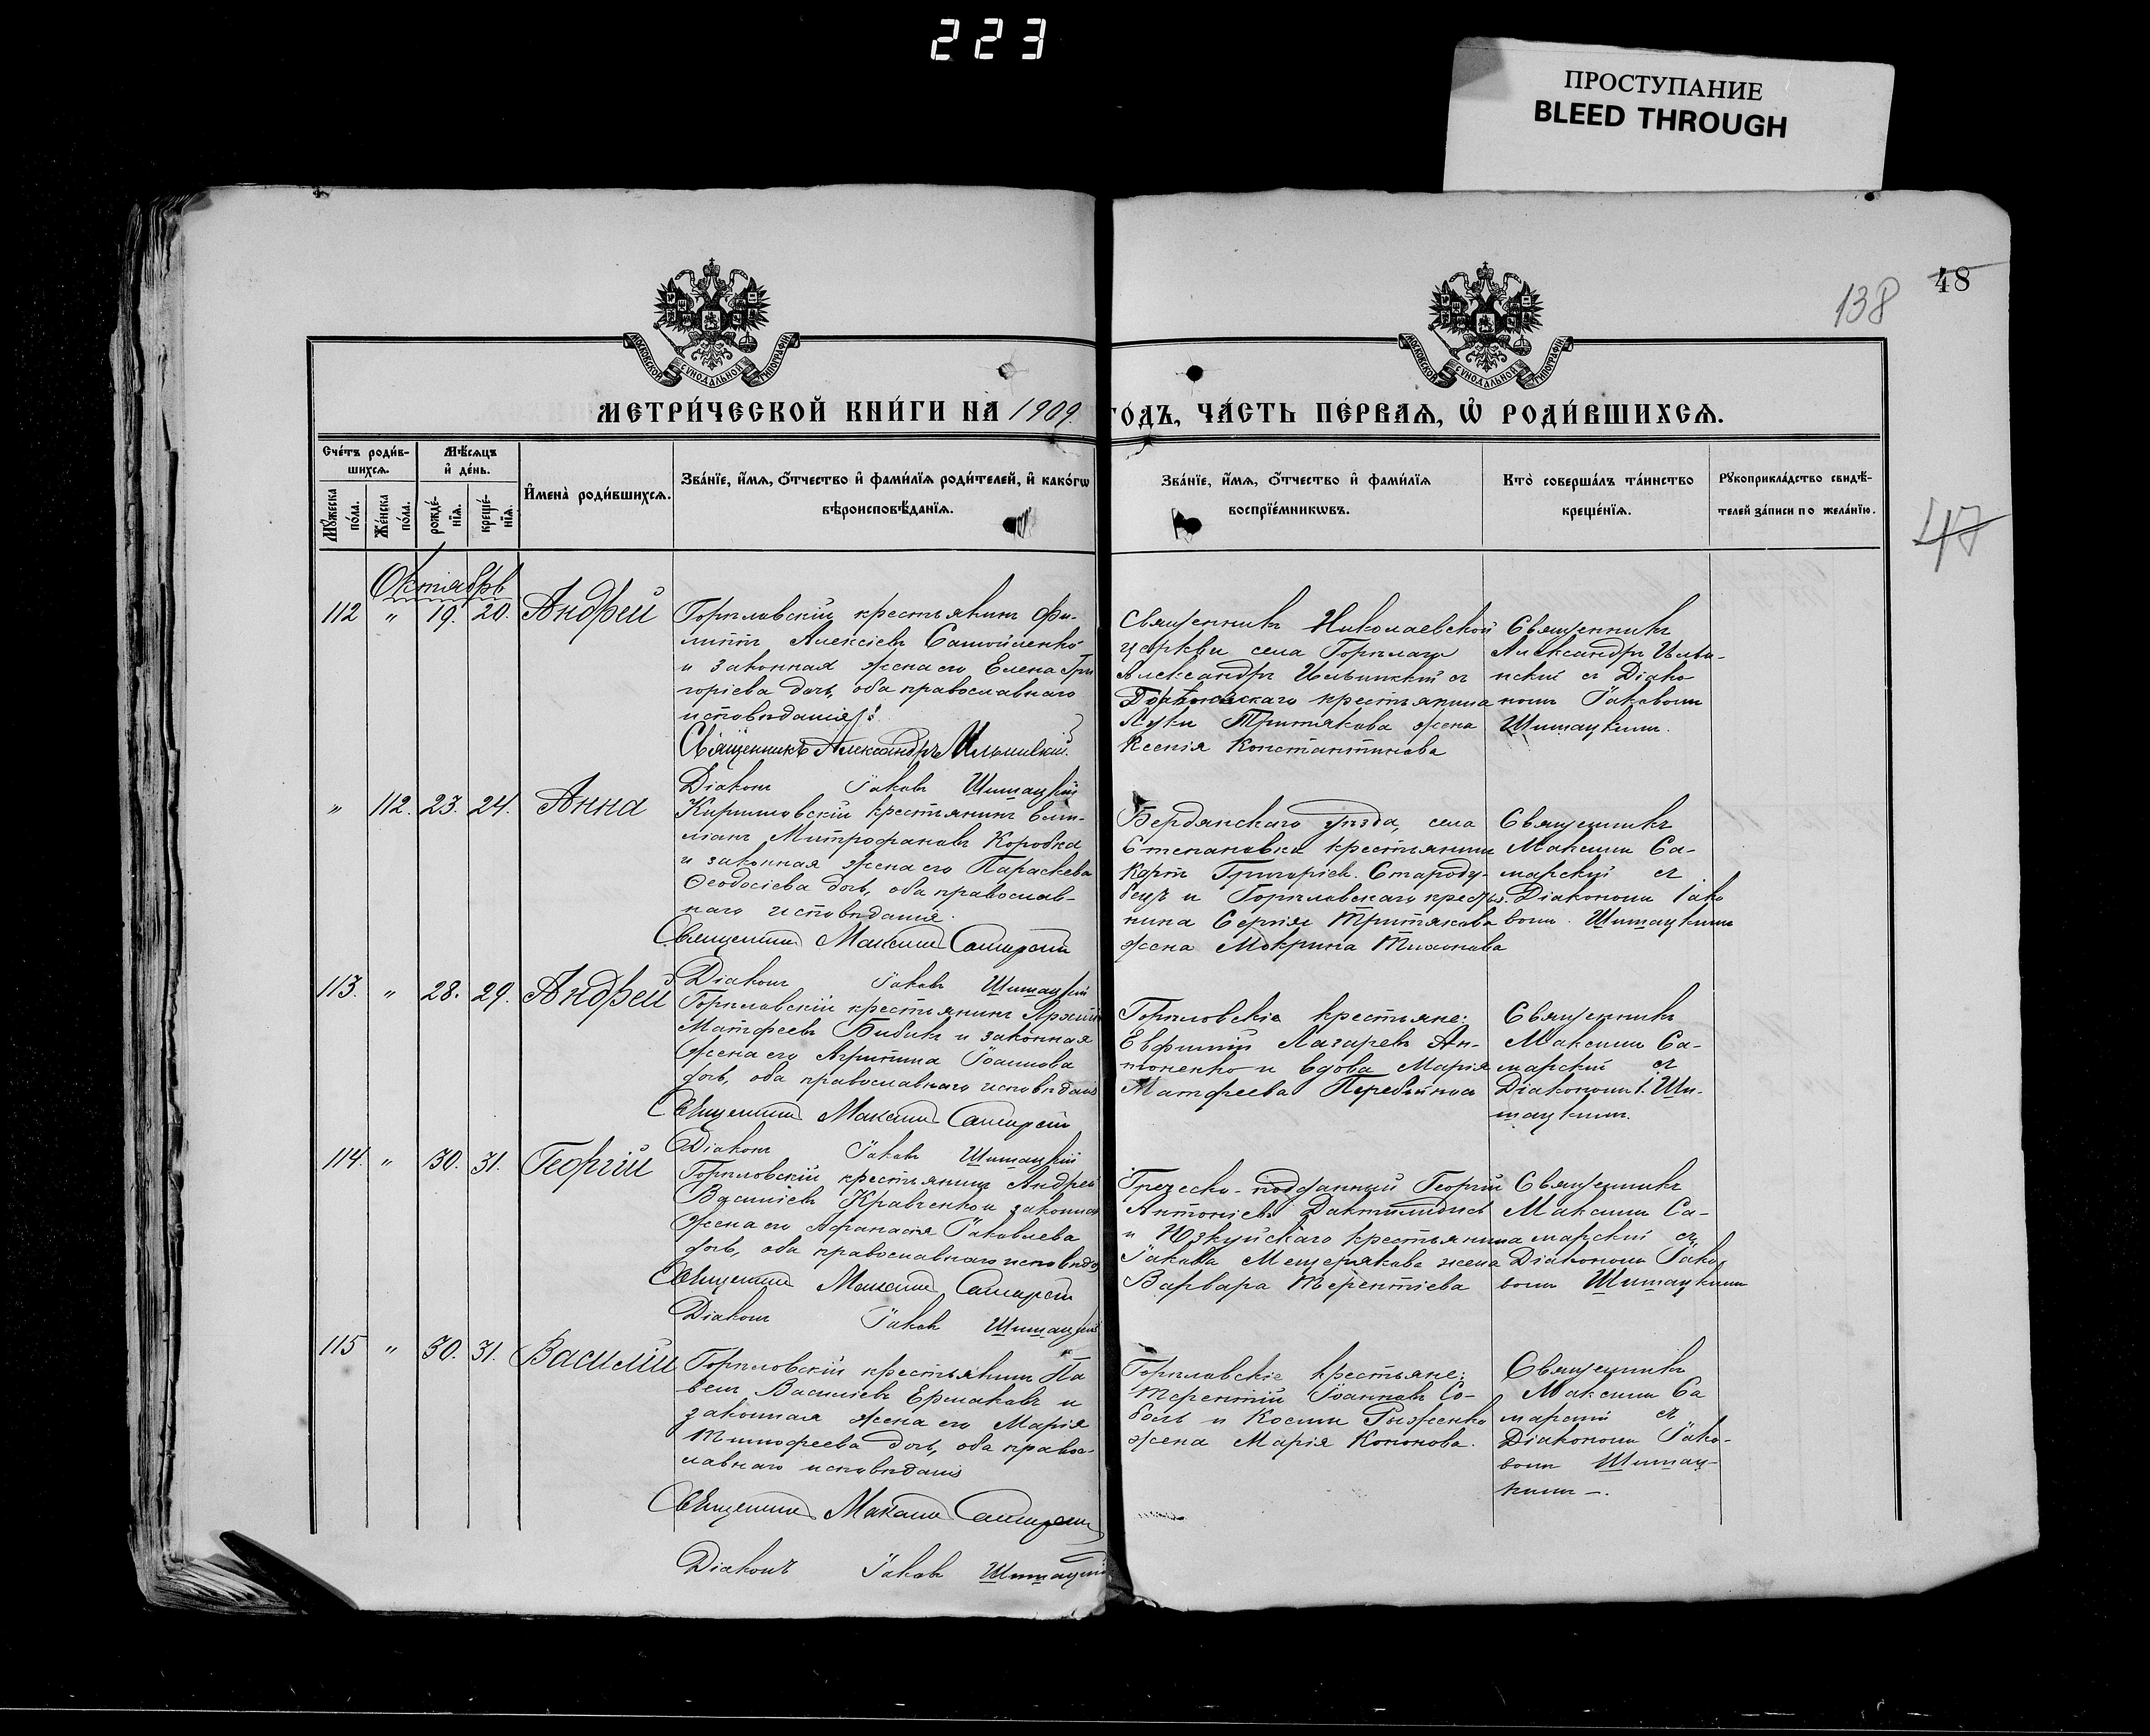 223
ПРОСТУПАНИЕ
BLEED THROUGH
48
138
47
МОСКОВСКОЙ СѴНОДАЛЬНОЙ ТИПОГРАФІИ
МОСКОВСКОЙ СѴНОДАЛЬНОЙ ТИПОГРАФІИ
МЕТРИ́ЧЕСКОЙ КНИ́ГИ НА 1909 ГО́ДЪ, ЧА́СТЬ ПЕ́РВАѦ, Ѡ҆ РОДИ́ВШИХСѦ.
Сче́тъ роди́в-
шихсѧ.
Мѣ́сѧцъ
и҆ де́нь.
Мꙋ́жеска по́ла.
Же́нска по́ла.
рожде́-нїѧ.
креще́-нїѧ.
И҆мена̀ роди́вшихсѧ.
Зва́нїе, и҆́мѧ, ѻ҆́тчество и҆ фами́лїѧ роди́телей, и҆ како́гѡ
вѣроисповѣ́данїѧ.
Зва́нїе, и҆́мѧ, ѻ҆́тчество и҆ фами́лїѧ
воспрїе́мникѡвъ.
Кто̀ соверша́лъ та́инство
креще́нїѧ.
Рꙋкоприкла́дство свидѣ́-
телей за́писи по жела́нїю.
Октябрь
112 " 19. 20. Андрей
Горѣловскій крестьянинъ Фи-
липпъ Алексіевъ Самойленко
и законная жена его Елена Гри
горіева дочь, оба православнаго
исповѣданія
Священникъ Александръ Ильницкій.
Діаконъ Іаковъ Шишацкій
Священникъ Николаевской
церкви села Горѣлаго
Александръ Ильницкій и
крестьянина
Луки Третьякова жена
Ксенія Константинова
Священникъ
Александръ Ильни-
цкій съ Діако
номъ Іаковомъ
Шишацкимъ.
" 112. 23. 24. Анна
Кирилловскій крестьянинъ Еми-
ліанъ Митрофановъ Коровка
и законная жена его Параскева
Ѳеодосіева дочь, оба православ-
наго исповѣданія.
Священникъ Максимъ Самарскій
Діаконъ Іаковъ Шишацкій
Бердянскаго уѣзда, села
Степановки крестьянинъ
Карпъ Григоріев. Староду-
бецъ и Горѣловскаго крестья.
нина Сергія Третьякова
жена Мокрина
Священникъ
Максимъ Са-
марскій съ
Діакономъ Іако
вомъ Шишацкимъ
113. " 28. 29. Андрей
Горѣловскій крестьянинъ
Матфеевъ Бибикъ и законная
жена его Агрипина Іоаннова
дочь, оба православнаго исповѣданія
Священникъ Максимъ Самарскій
Діаконъ Іаковъ Шишацкій
Горѣловскіе крестьяне:
Евфимій Лазаревъ Ан-
тоненко и вдова Марія
Матфеева
Священникъ
Максимъ Са-
марскій съ
Діакономъ І. Ши-
шацкимъ.
114. " 30. 31. Георгій
Горѣловскій крестьянинъ Андрей
Василіевъ Кравченко и законная
жена его Афанасія Іаковлева
дочь, оба православнаго исповѣда
Священникъ Максимъ Самарскій
Діаконъ Іаковъ Шишацкій
Греческо-подданный Георгій
Антоніевъ
и Юзкуйскаго крестьянина
Іакова Мещерякова жена
Варвара Терентіева
Священникъ
Максимъ Са-
марскій съ
Діакономъ Іако
вомъ Шишацкимъ
115 " 30. 31. Василій
Горѣловскій крестьянинъ Па
велъ Василіевъ Ермаковъ и
законная жена его Марія
Тимофеева дочь, оба правос-
лавнаго исповѣданія
Священникъ Максимъ Самарскій
Діаконъ Іаковъ Шишацкій
Горѣловскіе крестьяне:
Терентій Іоанновъ Со-
боль и Космы Рыженко
жена Марія Кононова.
Священникъ
Максимъ Са
марскій съ
Діакономъ Іако-
вомъ Шишац-
кимъ –.